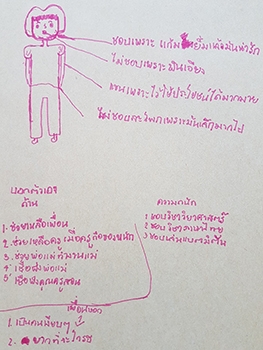 ชอบเพราะ แก้ม ยิ้มแล้วมันน่ารัก
ไม่ชอบเพราะ ฟันเอียง
แขนเพราะไว้ใช้ประโยชน์ได้มากมาย
ไม่ชอบสะโพกเพราะมันเล็กมากไป
บอกตัวเอง
ด้าน
1. ช่วยเหลือเพื่อน
2. ช่วยเหลือครู เมื่อครูถือของหนัก
3. ช่วยพ่อแม่ทำงานแม่
4. เชื่อฟังพ่อแม่
5. เชื่อฟังคุณครูสอน
ความถนัด
1. ชอบวิชาวิทยาศาสตร์
2. ชอบวิชาภาษาไทย
3. ชอบเล่นแบดมินตัน
เพื่อนบอก
1. เป็นคนเงียบๆ
2.